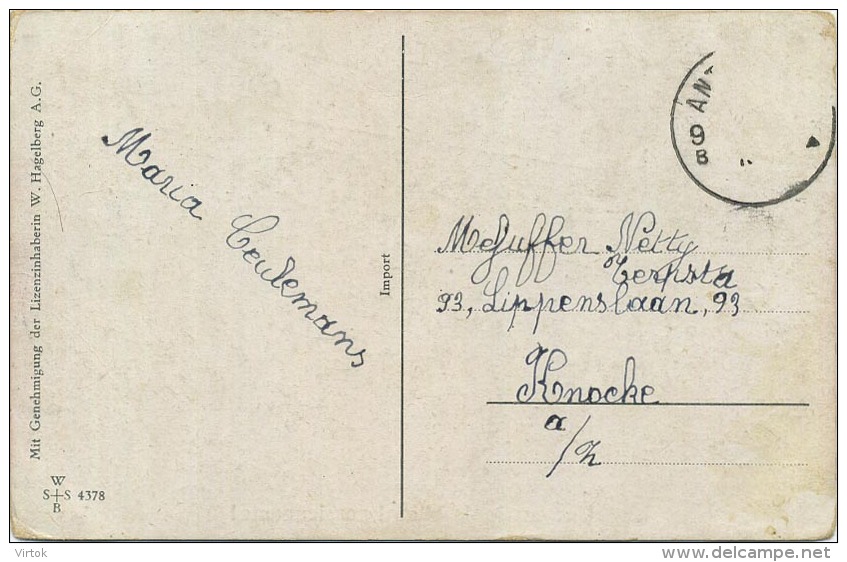 Mit Genehmigung der Lizenzinhaberin W. Hagelberg A.G.
W
S S 4378
B
Maria Ceulemans
Import
9 AN
B
Mejuffer Netty
Terpsta
93, Lippenslaan, 93
Knocke
a/z
Virtok
http://www.delcampe.net